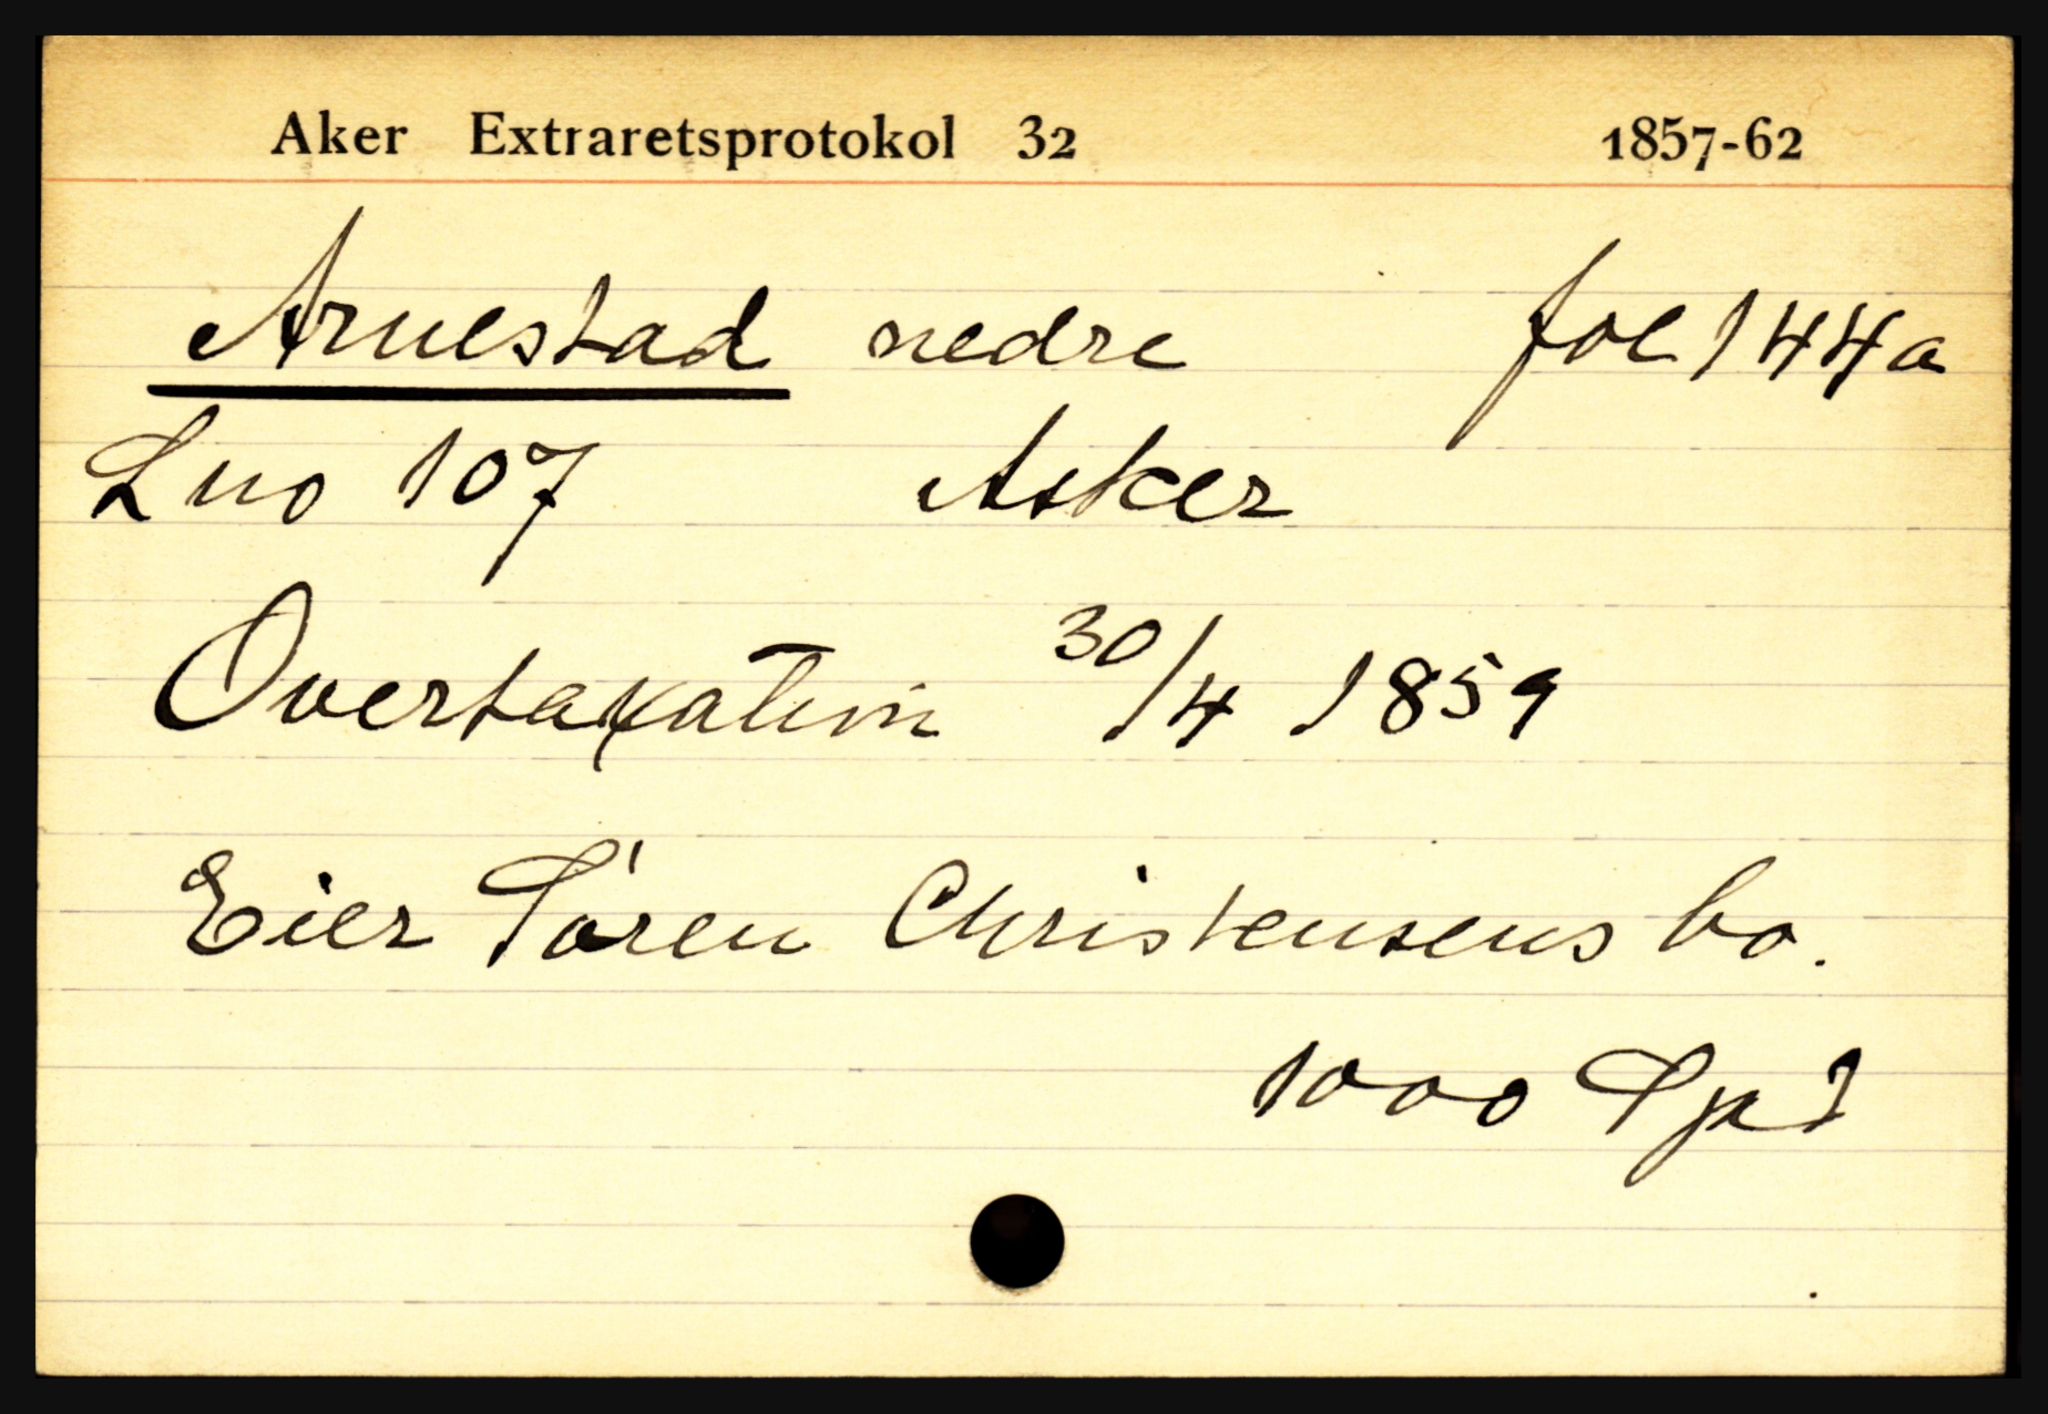 Aker Extraretsprotokol 32 1857-62
Arnestad nedre fol 144a
Lno 107 Asker
Overtaxation 30/4 1859
Eier Søren Christensens bo.
1000 Spd